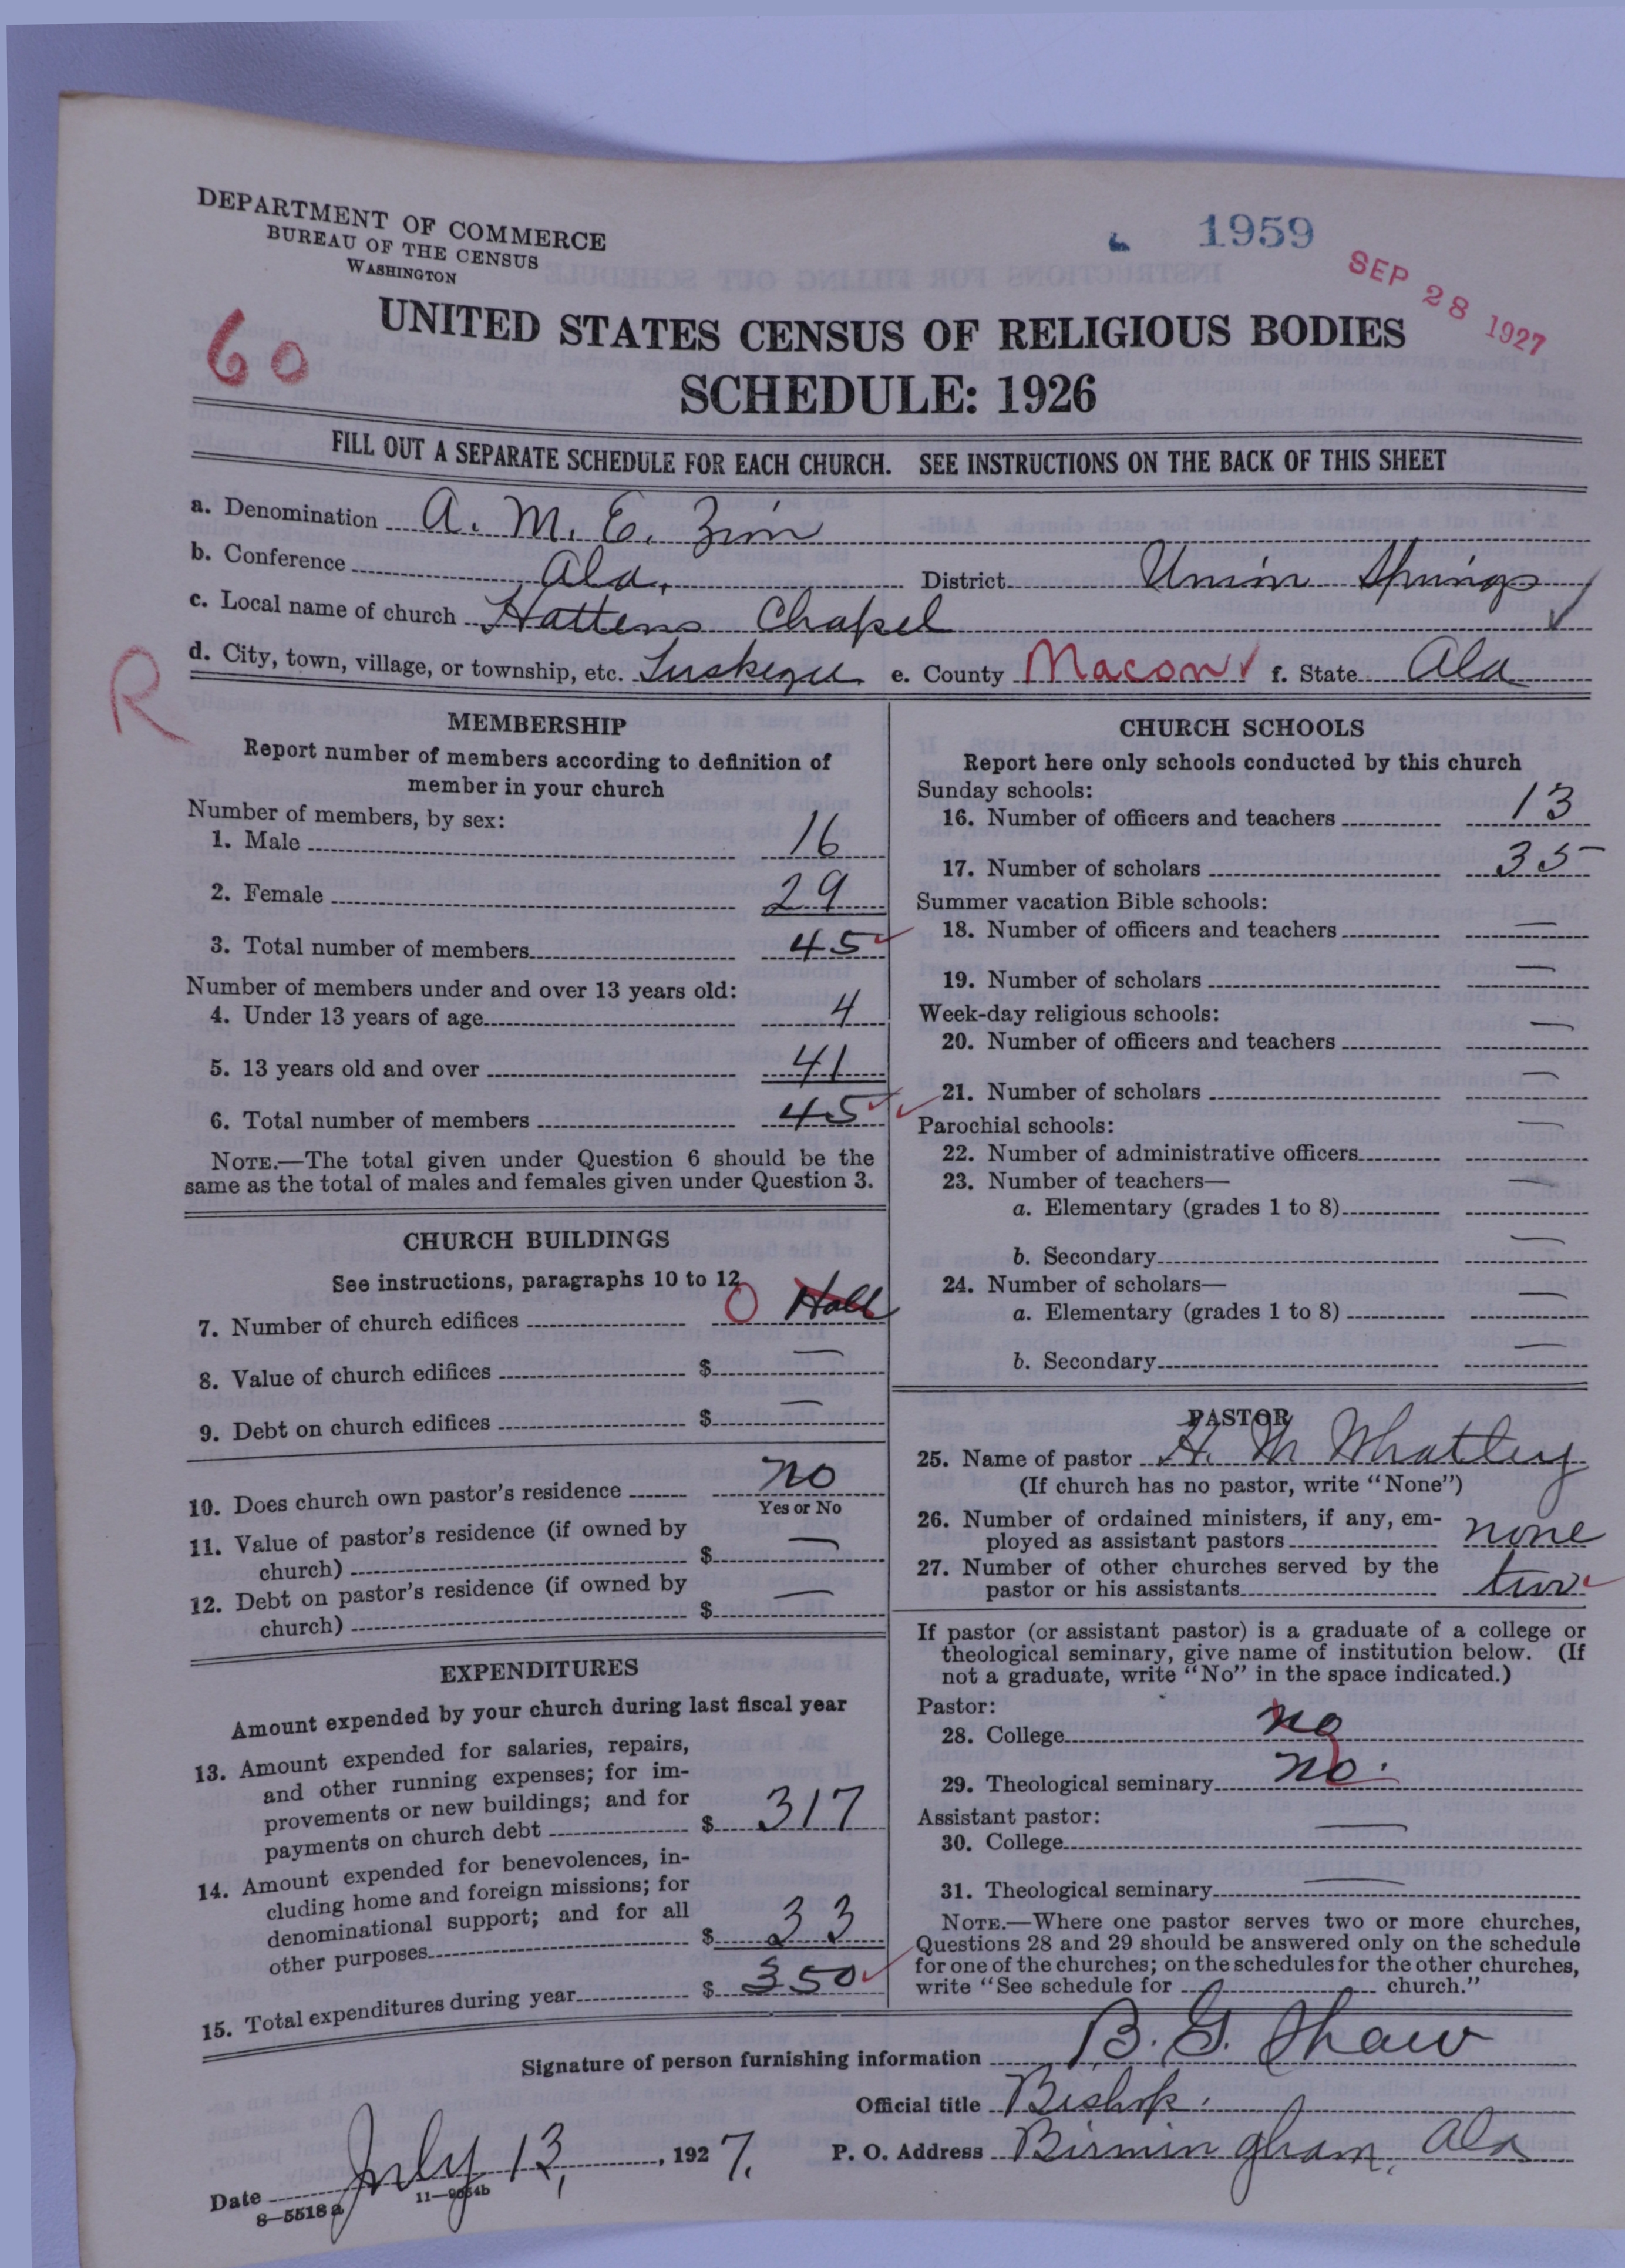 DEPARTMENT OF COMMERCE
BUREAU OF THE CENSUS
WASHINGTON
1959
SEP 28 1927
60
UNITED STATES CENSUS OF RELIGIOUS BODIES
SCHEDULE: 1926
FILL OUT A SEPARATE SCHEDULE FOR EACH CHURCH. SEE INSTRUCTIONS ON THE BACK OF THIS SHEET
a. Denomination A. M. E. Zion
b. Conference Ala. District Union Springs
c. Local name of church Hattens Chapel
R
d. City, town, village, or township, etc. Tuskegee e. County Macon f. State Ala
MEMBERSHIP
Report number of members according to definition of
member in your church
Number of members, by sex:
1. Male 16
2. Female 29
3. Total number of members 45
Number of members under and over 13 years old:
4. Under 13 years of age 4
5. 13 years old and over 41
6. Total number of members 45
NOTE.—The total given under Question 6 should be the
same as the total of males and females given under Question 3.
CHURCH BUILDINGS
See instructions, paragraphs 10 to 12
7. Number of church edifices 0 Hall
8. Value of church edifices $ —
9. Debt on church edifices $ —
10. Does church own pastor's residence no
Yes or No
11. Value of pastor's residence (if owned by
church) $ —
12. Debt on pastor's residence (if owned by
church) $ —
EXPENDITURES
Amount expended by your church during last fiscal year
13. Amount expended for salaries, repairs,
and other running expenses; for im-
provements or new buildings; and for
payments on church debt $ 317
14. Amount expended for benevolences, in-
cluding home and foreign missions; for
denominational support; and for all
other purposes $ 33
15. Total expenditures during year $ 350
CHURCH SCHOOLS
Report here only schools conducted by this church
Sunday schools:
16. Number of officers and teachers 13
17. Number of scholars 35
Summer vacation Bible schools:
18. Number of officers and teachers —
19. Number of scholars —
Week-day religious schools:
20. Number of officers and teachers —
21. Number of scholars —
Parochial schools:
22. Number of administrative officers —
23. Number of teachers—
a. Elementary (grades 1 to 8) —
b. Secondary —
24. Number of scholars—
a. Elementary (grades 1 to 8) —
b. Secondary —
PASTOR
25. Name of pastor H. M Whatley
(If church has no pastor, write "None")
26. Number of ordained ministers, if any, em-
ployed as assistant pastors none
27. Number of other churches served by the
pastor or his assistants two
If pastor (or assistant pastor) is a graduate of a college or
theological seminary, give name of institution below. (If
not a graduate, write "No" in the space indicated.)
Pastor:
28. College no
29. Theological seminary no.
Assistant pastor:
30. College —
31. Theological seminary —
NOTE.—Where one pastor serves two or more churches,
Questions 28 and 29 should be answered only on the schedule
for one of the churches; on the schedules for the other churches,
write "See schedule for church."
Signature of person furnishing information B. G. Shaw
Official title Bishop.
Date July 13, 1927. P. O. Address Birmingham, Ala
8—5518 a 11—9054b